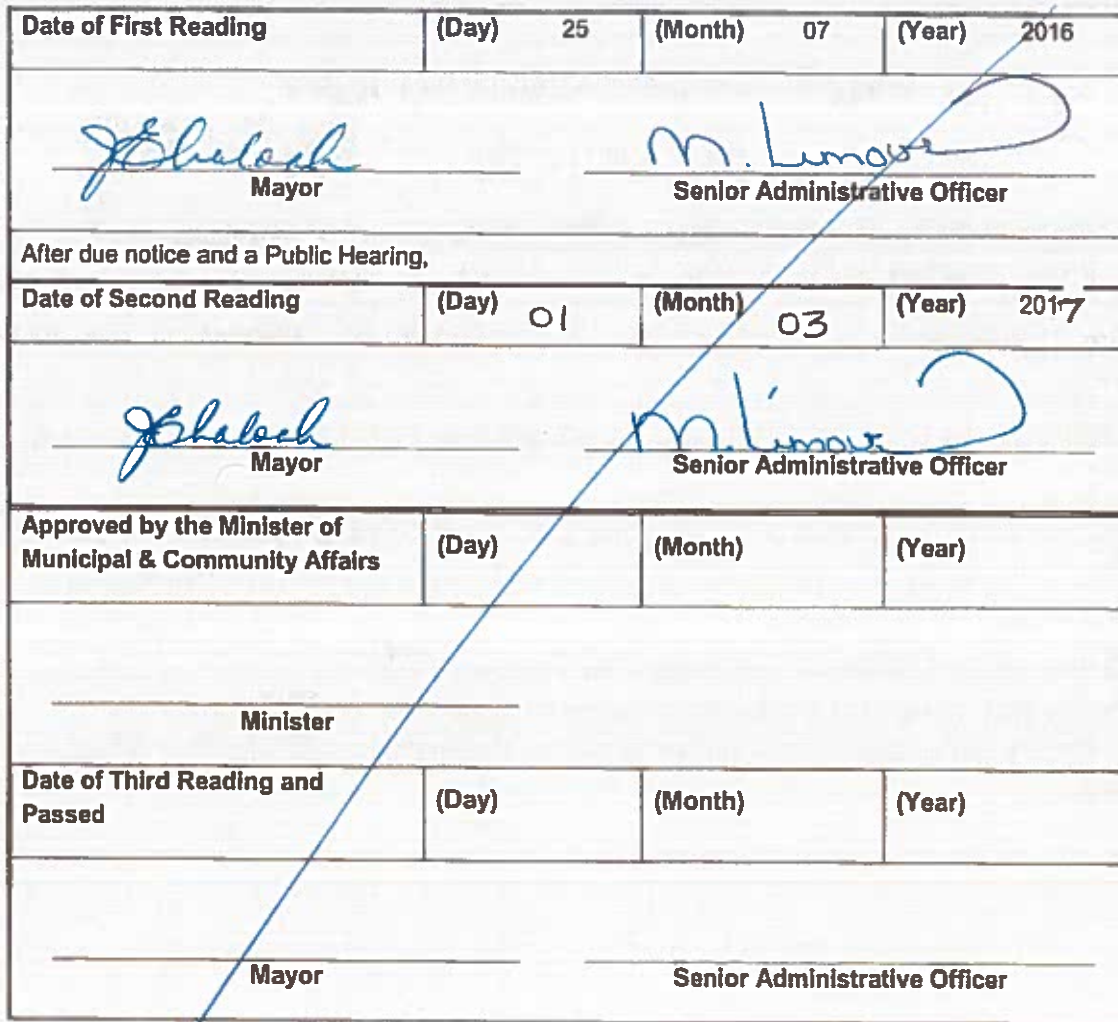 Date of First Reading (Day) 25 (Month) 07 (Year) 2016
M. Limour
Mayor Senior Administrative Officer
After due notice and a Public Hearing,
Date of Second Reading (Day) 01 (Month) 03 (Year) 2017
M. Limour
Mayor Senior Administrative Officer
Approved by the Minister of
Municipal & Community Affairs (Day) (Month) (Year)
Minister
Date of Third Reading and
Passed (Day) (Month) (Year)
Mayor Senior Administrative Officer